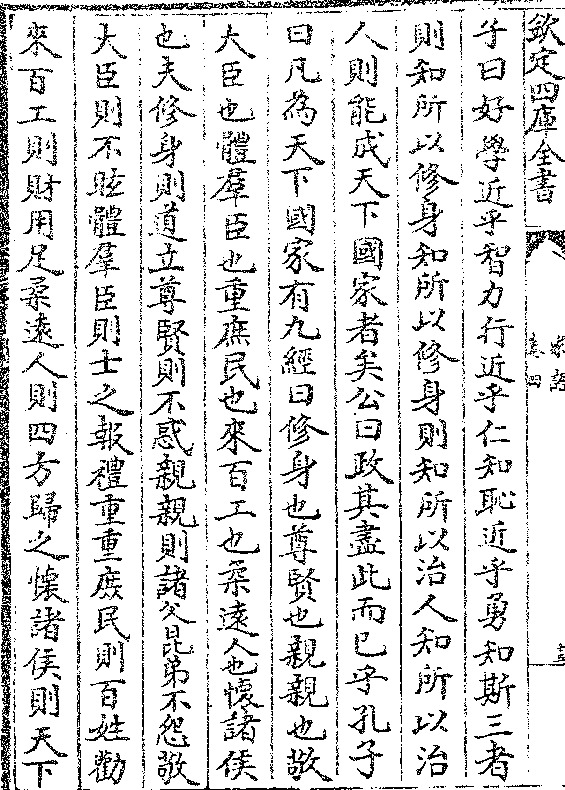 欽定四庫全書
家語
卷四
子曰好學近乎智力行近乎仁知恥近乎勇知斯三者
則知所以修身知所以修身則知所以治人知所以治
人則能成天下國家者矣公曰政其盡此而已乎孔子
曰凡為天下國家有九經曰修身也尊賢也親親也敬
大臣也體羣臣也重庶民也來百工也柔遠人也懷諸侯
也夫修身則道立尊賢則不惑親親則諸父昆弟不怨敬
大臣則不眩體羣臣則士之報禮重重庶民則百姓勸
來百工則財用足柔遠人則四方歸之懷諸侯則天下